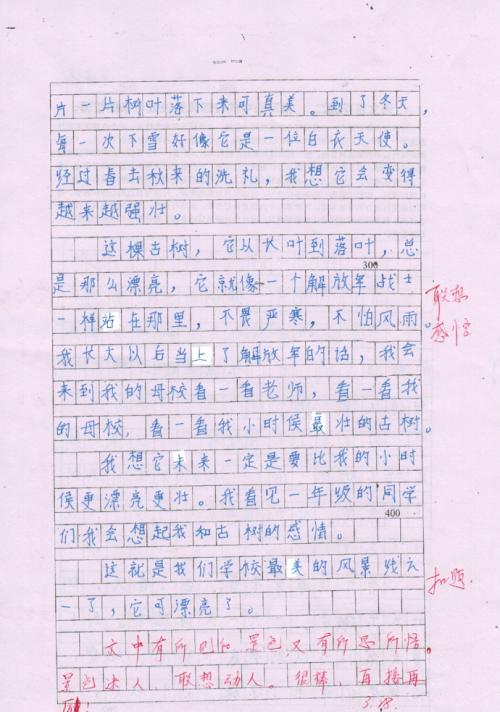 片一片树叶落下来可真美。到了冬天,
每一次下雪好像它是一位白衣天使。
经过春去秋来的洗礼,我想它会变得
越来越强壮。
这棵古树,它以长叶到落叶,总
300
是那么漂亮,它就像一个解放军战士
联想
一样站在那里,不畏严寒,不怕风雨。
感悟
我长大以后当上了解放军的话,我会
来到我的母校看一看老师,看一看我
的母校,看一看我小时候最壮的古树。
我想它未来一定是要比我的小时
候更漂亮更壮。我看见一年级的同学
400
们我会想起我和古树的感情。
这就是我们学校最美的风景线之
扣题。
一了,它可漂亮了。
文中有所见的景色,又有所思所悟。
景色迷人,联想动人。很棒,再接再
厉!
3.18.